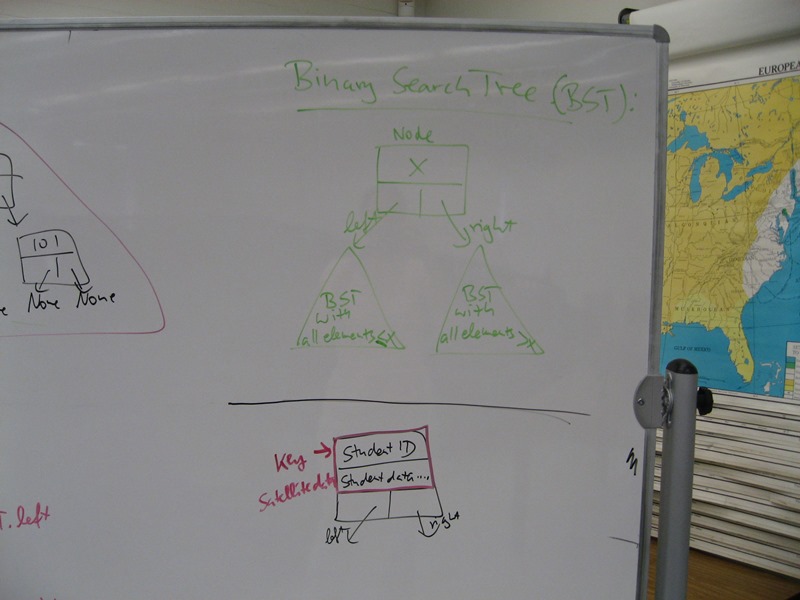 Binary Search Tree (BST):
Node
X
left
right
BST
with
all elements <X
BST
with
all elements >X
101
None
None
Key →
Student ID
Satellite data
Student data....
left
right
T.left
EUROPEA
GULF OF MEXICO